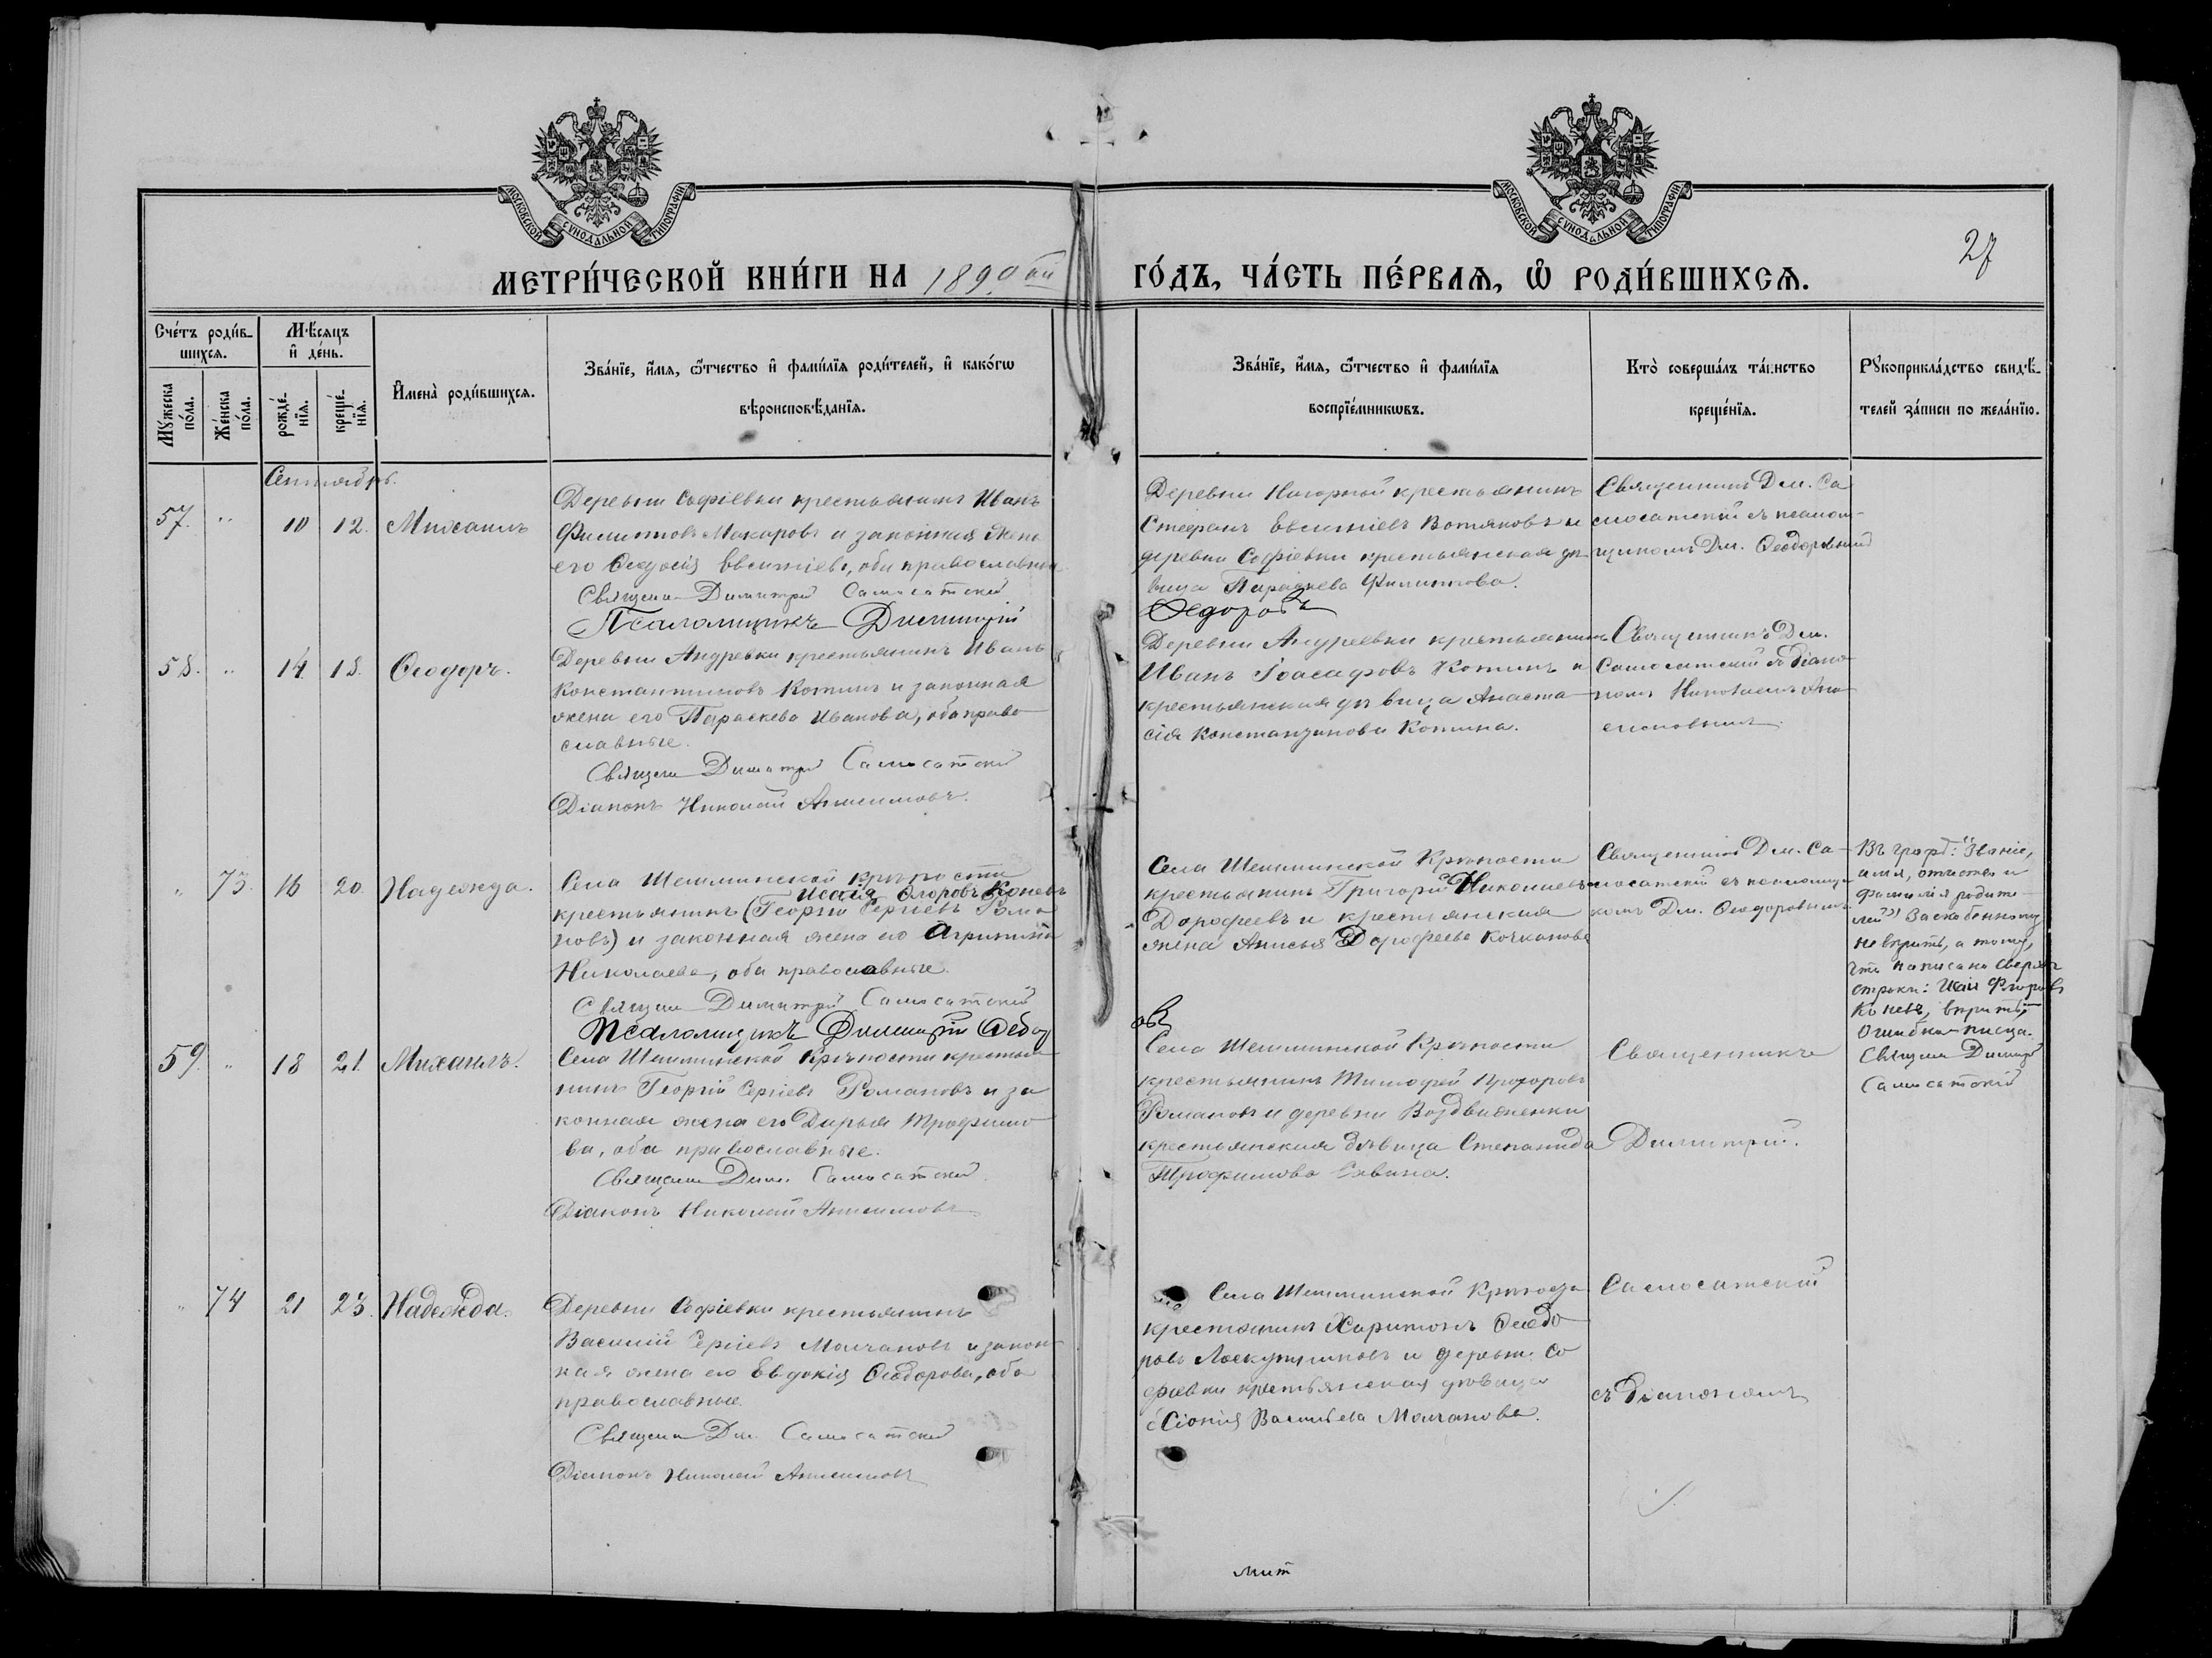 МОСКОВСКОЙ СѴНОДАЛЬНОЙ ТИПОГРАФІИ
МОСКОВСКОЙ СѴНОДАЛЬНОЙ ТИПОГРАФІИ
27
МЕТРИ́ЧЕСКОЙ КНИ́ГИ НА 1890ый ГО́ДЪ, ЧА́СТЬ ПЕ́РВАѦ, Ѡ РОДИ́ВШИХСѦ.
Сче́тъ роди́в-
шихсѧ.
Мꙋжеска
по́ла.
Же́нска
по́ла.
Мѣ́сѧцъ
и҆ де́нь.
рожде́-
нїѧ.
креще́-
нїѧ.
И҆мена̀ роди́вшихсѧ.
Зва́нїе, и҆́мѧ, ѻ҆́тчество и҆ фами́лїѧ роди́телей, и҆ како́гѡ
вѣроисповѣ́данїѧ.
Зва́нїе, и҆́мѧ, ѻ҆́тчество и҆ фами́лїѧ
воспрїе́мникѡвъ.
Кто̀ соверша́лъ та́инство
креще́нїѧ.
Рꙋкоприкла́дство свидѣ́-
телей за́писи по жела́нїю.
Сентябрь.
57. " 10 12. Михаилъ
Деревни Софіевки крестьянинъ Иванъ
Филипповъ Макаровъ и законная жена
его Ѳеодосія Евсигніева, оба православные
Священ. Димитрій Самосатскій
Псаломщикъ Димитрій
Деревни Нагорной крестьянинъ
Стефанъ Евсигніевъ Вотяковъ и
деревни Софіевки крестьянская дѣ-
вица Параскева Филиппова.
Ѳедоровъ
Священникъ Дм. Са
мосатскій съ псалом-
щикомъ Дм. Ѳеодоровымъ
58. " 14 18. Ѳеодоръ.
Деревни Андревки крестьянинъ Иванъ
Константиновъ Котинъ и законная
жена его Параскева Иванова, оба право
славные.
Священ Димитрій Самосатскій
Діаконъ Николай Анисимовъ.
Деревни Андреевки крестьянинъ
Иванъ Іоасафовъ Котинъ и
крестьянская дѣвица Анаста
сія Константинова Котина.
Священникъ Дм.
Самосатскій съ діако
номъ Николаемъ Ани
симовымъ.
" 73. 16 20. Надежда.
Села Шешминской крѣпости
Исаія Ѳлоровъ Коневъ
крестьянинъ (Георгій Сергіевъ Рома
новъ) и законная жена его Агрипина
Николаева, оба православные.
Священ Димитрій Самосатскій
Псаломщикъ Димитрій Ѳедор
Села Шешминской Крѣпости
крестьянинъ Григорій Николаевъ
Дорофеевъ и крестьянская
жена Анисья Дорофеева Кочканова
овъ
Священникъ Дм. Са-
мосатскій съ псаломщи
комъ Дм. Ѳеодоровымъ.
Въ графѣ: "Званіе,
имя, отчество и
фамилія родите
лей" Заскобенному
не вѣрить, а тому,
что написано сверхъ
строки: Исаія Флоровъ
Коневъ, вѣрить.
Ошибка писца.
Священ Димитр
Самосатскій
59. " 18 21. Михаилъ.
Села Шешминской Крѣпости крестья
нинъ Георгій Сергіевъ Романовъ и за
конная жена его Дарья Трофимо
ва, оба православные.
Священ Дим. Самосатскій
Діаконъ Николай Анисимовъ
Села Шешминской Крѣпости
крестьянинъ Тимофей Прохоровъ
Романовъ и деревни Воздвиженки
крестьянская дѣвица Степанида
Трофимова
Священникъ
Димитрій.
" 74 21 23. Надежда.
Деревни Софіевки крестьянинъ
Василій Сергіевъ Молчановъ и закон
ная жена его Евдокія Ѳеодорова, оба
православные
Священ Дм. Самосатскій
Діаконъ Николай Анисимовъ
Села Шешминской Крѣпости
крестьянинъ Харитонъ Ѳеодо
ровъ Лоскутниковъ и деревни Со
фіевки крестьянская дѣвица
Васильева Молчанова.
Самосатскій
съ діакономъ